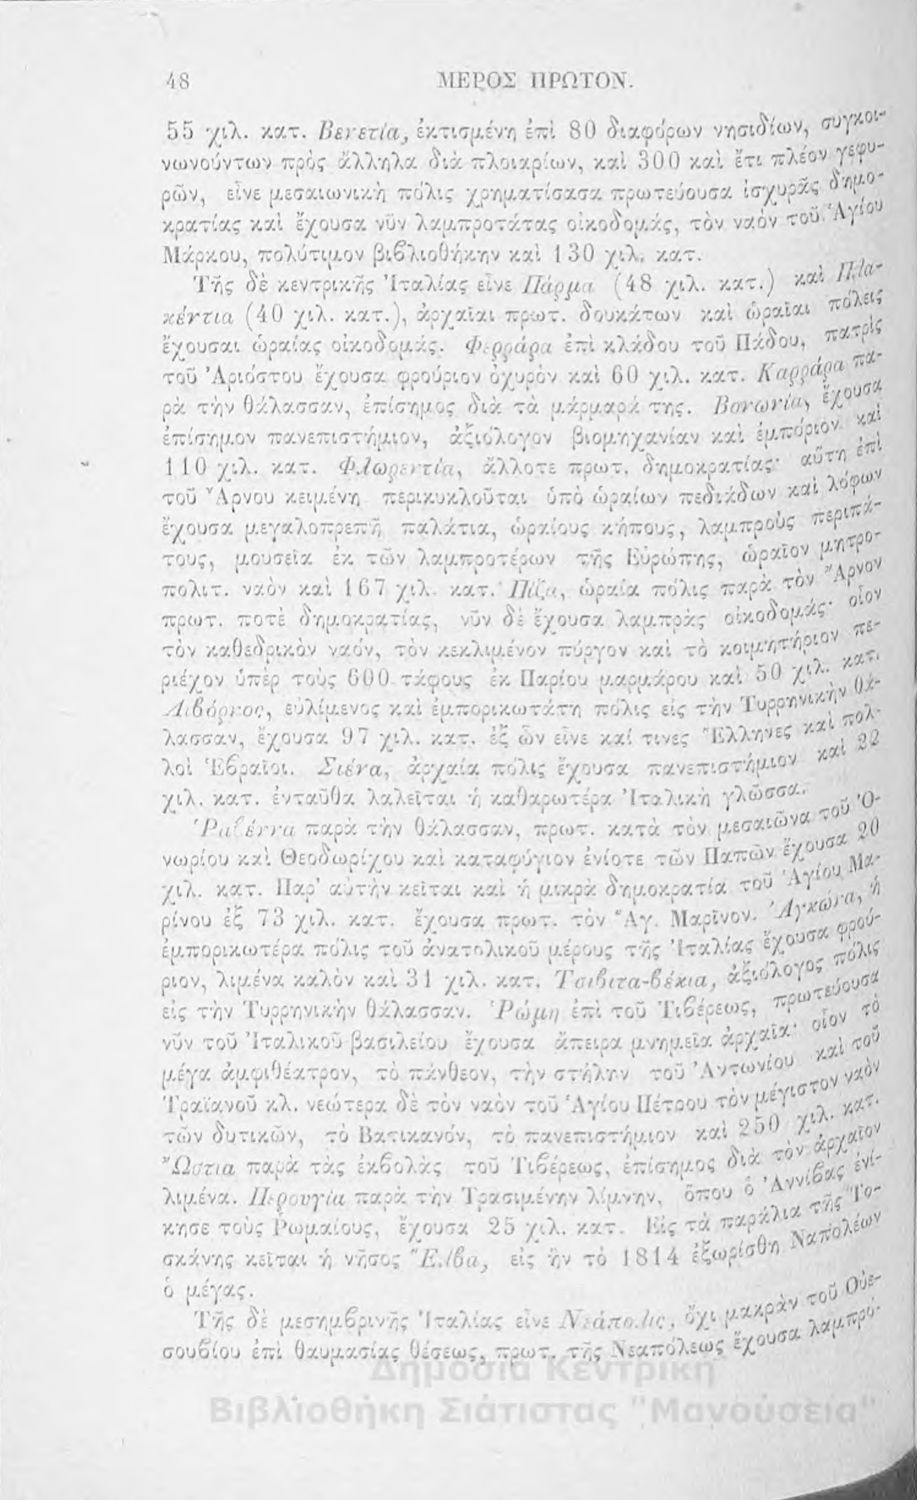 48 ΜΕΡΟΣ ΠΡΩΤΟΝ.
55 χιλ. κατ. Βενετία, ἐκτισμένη ἐπὶ 80 διαφόρων νησιδίων, συγκοι-
νωνούντων πρὸς ἄλληλα διὰ πλοιαρίων, καὶ 300 καὶ ἔτι πλέον γεφυ-
ρῶν, εἶνε μεσαιωνικὴ πόλις χρηματίσασα πρωτεύουσα ἰσχυρᾶς δημο-
κρατίας καὶ ἔχουσα νῦν λαμπροτάτας οἰκοδομάς, τὸν ναὸν τοῦ Ἁγίου
Μάρκου, πολύτιμον βιβλιοθήκην καὶ 130 χιλ. κατ.
Τῆς δὲ κεντρικῆς Ἰταλίας εἶνε Πάρμα (48 χιλ. κατ.) καὶ Πλα-
κέντια (40 χιλ. κατ.), ἀρχαῖαι πρωτ. δουκάτων καὶ ὡραῖαι πόλεις
ἔχουσαι ὡραίας οἰκοδομάς. Φερράρα ἐπὶ κλάδου τοῦ Πάδου, πατρὶς
τοῦ Ἀριόστου ἔχουσα φρούριον ὀχυρὸν καὶ 60 χιλ. κατ. Καρράρα πα-
ρὰ τὴν θάλασσαν, ἐπίσημος διὰ τὰ μάρμαρά της. Βονωνία, ἔχουσα
ἐπίσημον πανεπιστήμιον, ἀξιόλογον βιομηχανίαν καὶ ἐμπόριον καὶ
110 χιλ. κατ. Φλωρεντία, ἄλλοτε πρωτ. δημοκρατίας· αὕτη ἐπὶ
τοῦ Ἄρνου κειμένη περικυκλοῦται ὑπὸ ὡραίων πεδιάδων καὶ λόφων
ἔχουσα μεγαλοπρεπῆ παλάτια, ὡραίους κήπους, λαμπροὺς περιπά-
τους, μουσεῖα ἐκ τῶν λαμπροτέρων τῆς Εὐρώπης, ὡραῖον μητρο-
πολιτ. ναὸν καὶ 167 χιλ. κατ. Πίζα, ὡραία πόλις παρὰ τὸν Ἄρνον
πρωτ. ποτὲ δημοκρατίας, νῦν δὲ ἔχουσα λαμπρὰς οἰκοδομάς· οἷον
τὸν καθεδρικὸν ναόν, τὸν κεκλιμένον πύργον καὶ τὸ κοιμητήριον πε-
ριέχον ὑπὲρ τοὺς 600 τάφους ἐκ Παρίου μαρμάρου καὶ 50 χιλ. κατ.
Λιβόρνος, εὐλίμενος καὶ ἐμπορικωτάτη πόλις εἰς τὴν Τυρρηνικὴν θά-
λασσαν, ἔχουσα 97 χιλ. κατ. ἐξ ὧν εἶνε καί τινες Ἕλληνες καὶ πολ-
λοὶ Ἑβραῖοι. Σιένα, ἀρχαία πόλις ἔχουσα πανεπιστήμιον καὶ 22
χιλ. κατ. ἐνταῦθα λαλεῖται ἡ καθαρωτέρα Ἰταλικὴ γλῶσσα.
Ῥαβέννα παρὰ τὴν θάλασσαν, πρωτ. κατὰ τὸν μεσαιῶνα τοῦ Ὁ-
νωρίου καὶ Θεοδωρίχου καὶ καταφύγιον ἐνίοτε τῶν Παπῶν ἔχουσα 20
χιλ. κατ. Παρ' αὐτὴν κεῖται καὶ ἡ μικρὰ δημοκρατία τοῦ Ἁγίου Μα-
ρίνου ἐξ 73 χιλ. κατ. ἔχουσα πρωτ. τὸν Ἅγ. Μαρῖνον. Ἀγκώνα, ἡ
ἐμπορικωτέρα πόλις τοῦ ἀνατολικοῦ μέρους τῆς Ἰταλίας ἔχουσα φρού-
ριον, λιμένα καλὸν καὶ 31 χιλ. κατ. Τσιβιτα-βέκια, ἀξιόλογος πόλις
εἰς τὴν Τυρρηνικὴν θάλασσαν. Ῥώμη ἐπὶ τοῦ Τιβέρεως, πρωτεύουσα
νῦν τοῦ Ἰταλικοῦ βασιλείου ἔχουσα ἄπειρα μνημεῖα ἀρχαῖα· οἷον τὸ
μέγα ἀμφιθέατρον, τὸ πάνθεον, τὴν στήλην τοῦ Ἀντωνίου καὶ τοῦ
Τραϊανοῦ κλ. νεώτερα δὲ τὸν ναὸν τοῦ Ἁγίου Πέτρου τὸν μέγιστον ναὸν
τῶν δυτικῶν, τὸ Βατικανόν, τὸ πανεπιστήμιον καὶ 250 χιλ. κατ.
Ὤστια παρὰ τὰς ἐκβολὰς τοῦ Τιβέρεως, ἐπίσημος διὰ τὸν ἀρχαῖον
λιμένα. Περουγία παρὰ τὴν Τρασιμένην λίμνην, ὅπου ὁ Ἀννίβας ἐνί-
κησε τοὺς Ῥωμαίους, ἔχουσα 25 χιλ. κατ. Εἰς τὰ παράλια τῆς Το-
σκάνης κεῖται ἡ νῆσος Ἔλβα, εἰς ἣν τὸ 1814 ἐξωρίσθη Ναπολέων
ὁ μέγας.
Τῆς δὲ μεσημβρινῆς Ἰταλίας εἶνε Νεάπολις, ὄχι μακρὰν τοῦ Οὐε-
σουβίου ἐπὶ θαυμασίας θέσεως, πρωτ. τῆς Νεαπόλεως ἔχουσα λαμπρο-
Δημόσια Κεντρική
Βιβλιοθήκη Σιάτιστας "Μανούσεια"